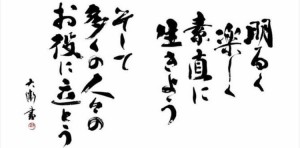 明るく
楽しく
素直に
生きよう
そして
多くの人々の
お役に立とう